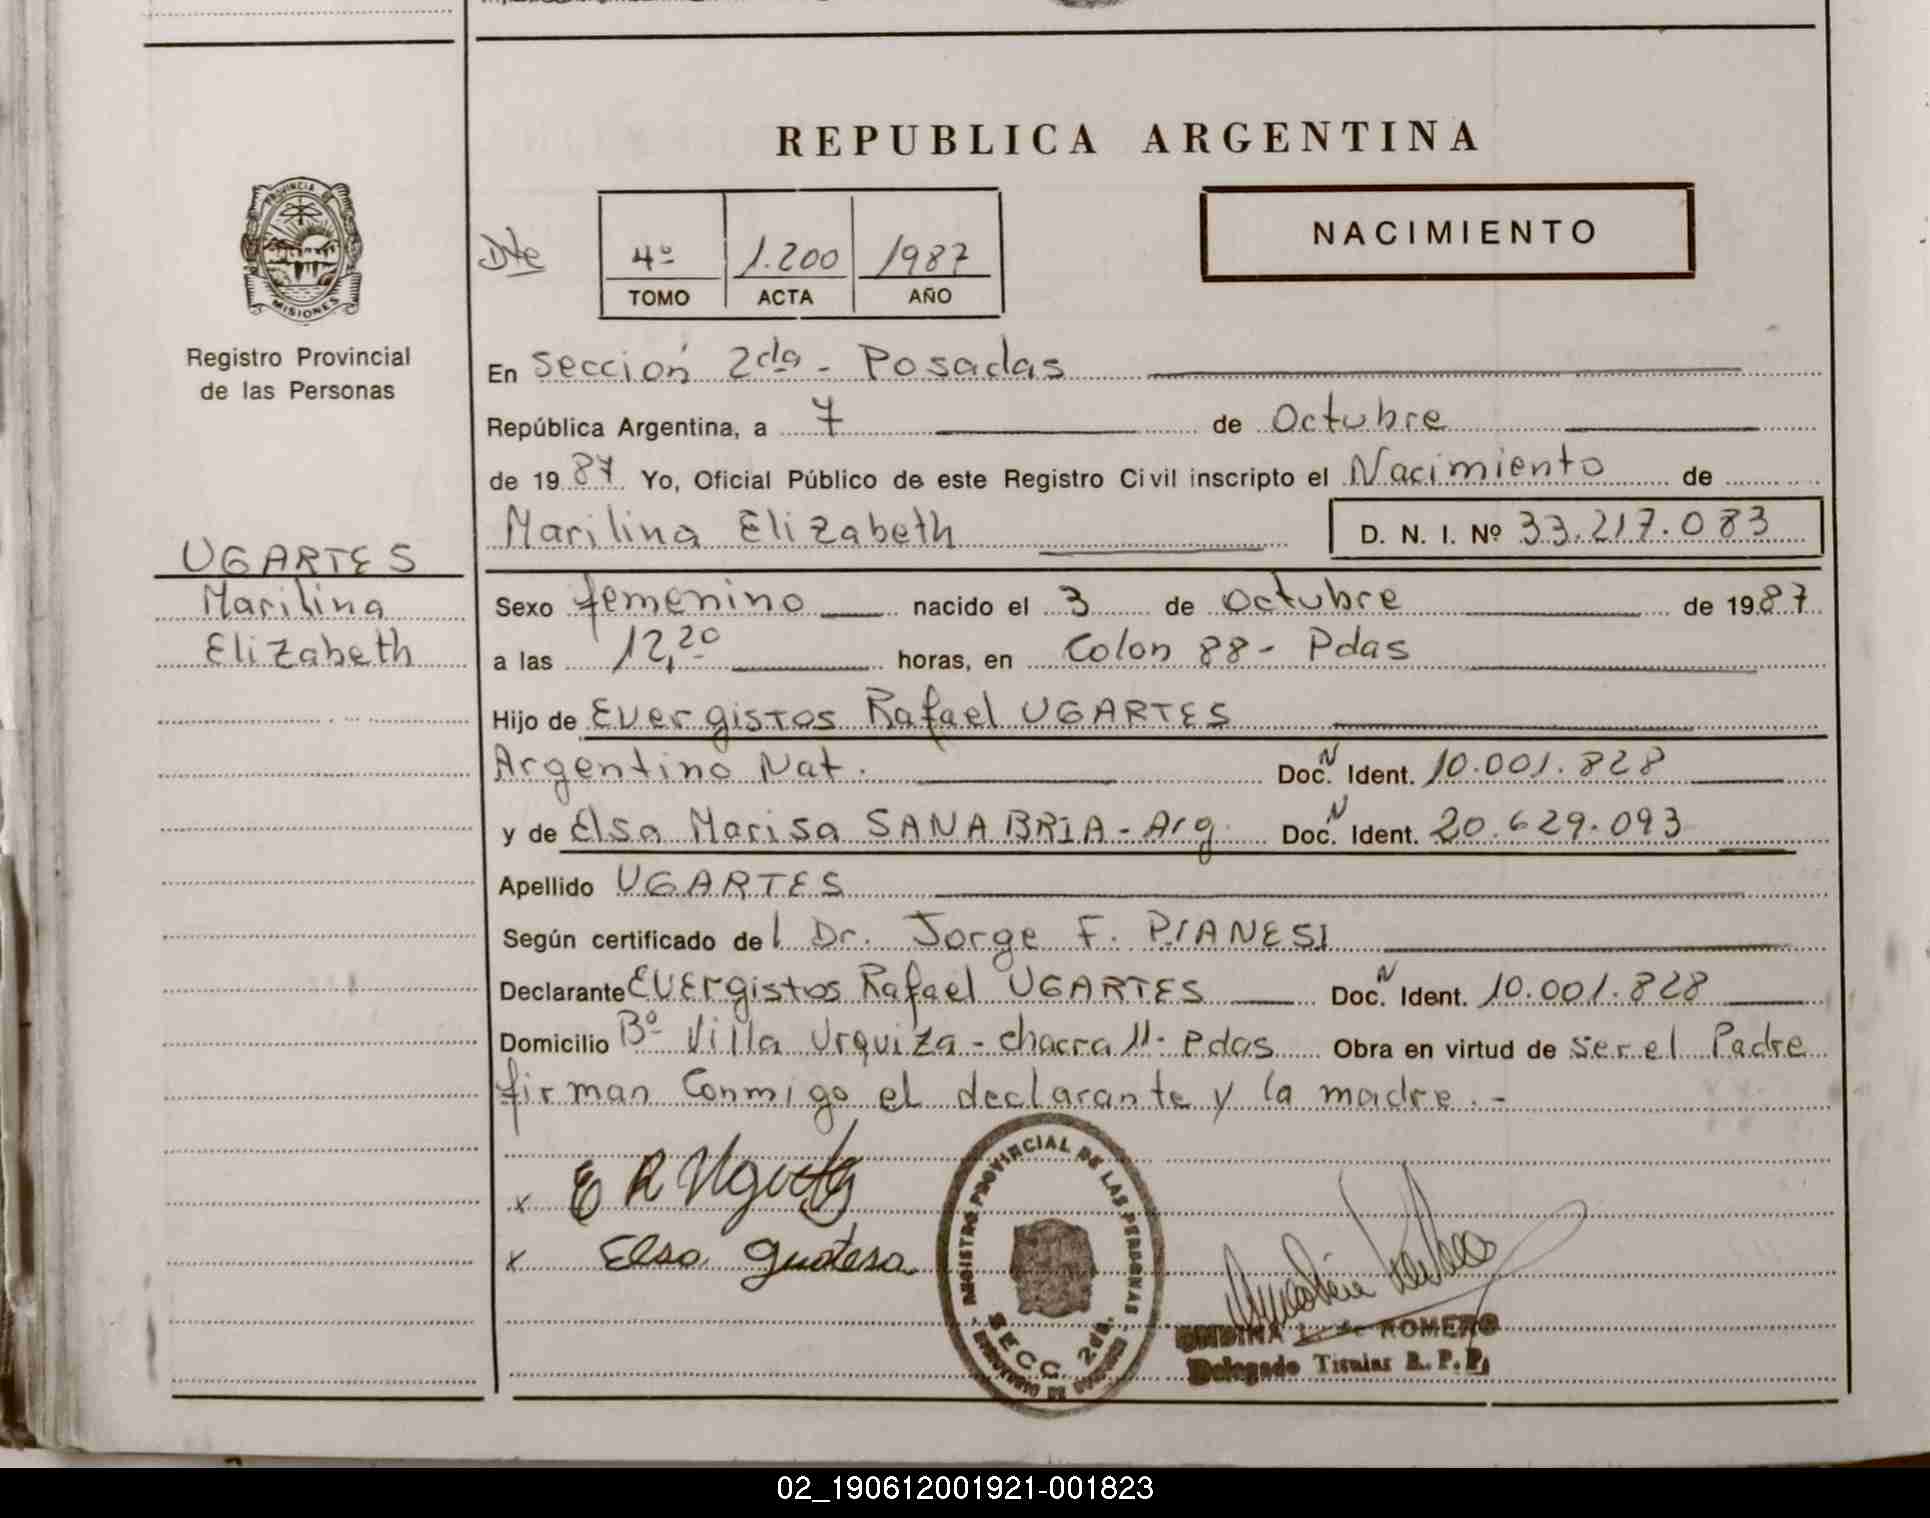 REPUBLICA ARGENTINA
NACIMIENTO
Dte
4º 1.200 1987
TOMO ACTA AÑO
PROVINCIA DE
MISIONES
Registro Provincial
de las Personas
UGARTES
Marilina
Elizabeth
En Sección 2da - Posadas
República Argentina, a 7 de Octubre
de 1987 Yo, Oficial Público de este Registro Civil inscripto el Nacimiento de
Marilina Elizabeth D. N. I. Nº 33.217.083
Sexo femenino nacido el 3 de Octubre de 1987
a las 12,20 horas, en Colon 88 - Pdas
Hijo de Evergistos Rafael UGARTES
Argentino Nat. Doc. N Ident. 10.001.828
y de Elsa Marisa SANABRIA - Arg. Doc. N Ident. 20.629.093
Apellido UGARTES
Según certificado del Dr. Jorge F. PIANESI
Declarante Evergistos Rafael UGARTES Doc. N Ident. 10.001.828
Domicilio Bº Villa Urquiza - chacra 11 - Pdas Obra en virtud de ser el Padre
firman Conmigo el declarante y la madre. -
x E R
x Elsa
REGISTRO PROVINCIAL DE LAS PERSONAS
SECC. 2da.
ROMERO
Delegado Titular R. P. P.
02_190612001921-001823